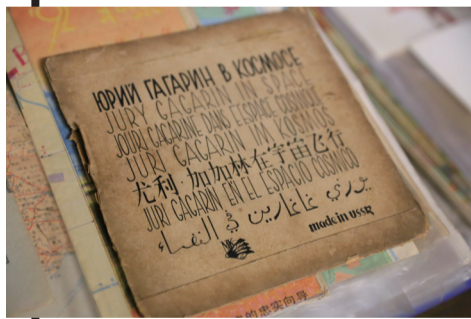 ЮРИЙ ГАГАРИН В КОСМОСЕ
JURY GAGARIN IN SPACE
JOURI GAGARINE DANS L'ESPACE COSMIQUE
JURI GAGARIN IM KOSMOS
尤利·加加林在宇宙飞行
JURI GAGARIN EN EL ESPACIO COSMICO
يوري غاغارين في الفضاء
made in USSR
的忠实向导